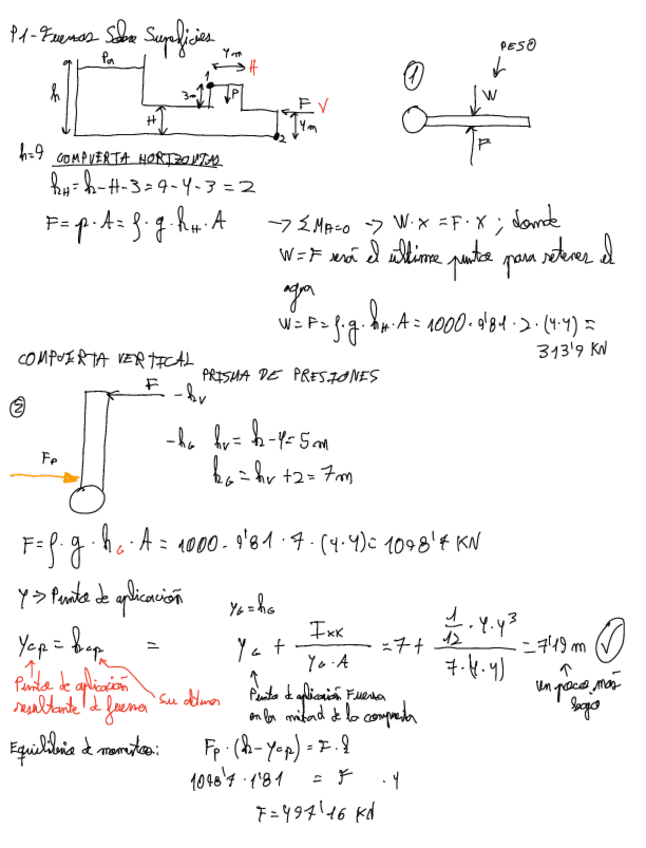 P1-Fuerzas Sobre Superficies
Pa
4m
H
1
3m
P
h
H
F
V
4m
2
1
PESO
W
F
h=9 COMPUERTA HORIZONTAL
hH = h-H-3=9-4-3=2
F= p·A= ρ·g·hH·A
→ ΣMA=0 → W·x = F·x ; donde
W=F será el último punto para retener el
agua
W=F= ρ·g·hH·A = 1000·9'81·2·(4·4) =
313'9 KN
COMPUERTA VERTICAL
PRISMA DE PRESIONES
2
F
-hv
-hG hv= h-4=5m
Fp
hG = hv +2= 7m
F= ρ·g·hG·A = 1000·9'81·7·(4·4)= 1098'7 KN
y→ Punto de aplicación
yG=hG
ycp = hcp = yG + Ixx / yG·A = 7+ 1/12·4·4³ / 7·(4·4) = 7'19m ✓
Punto de aplicación
resultante d fuerza
Su altura
Punto d aplicación Fuerza
en la mitad de la compuerta
un poco más
bajo
Equilibrio de momentos: Fp·(h-ycp) = F·l
1098'7·1'81 = F·4
F=497'16 KN